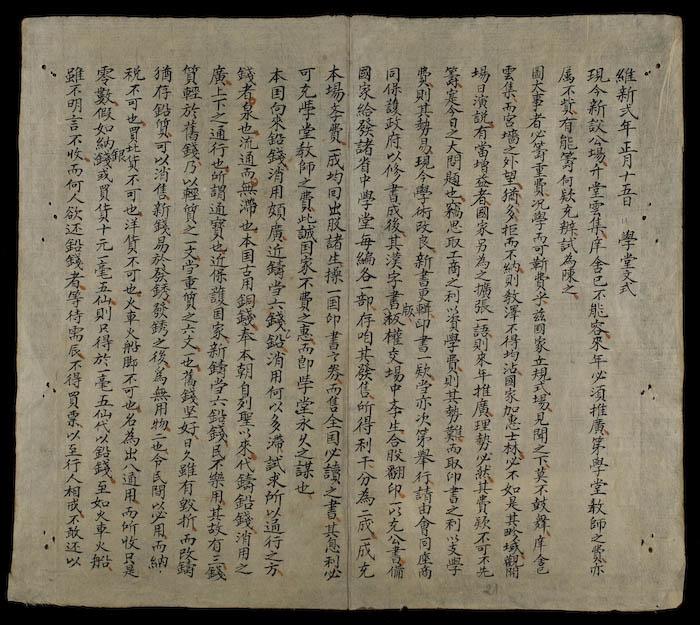 維新弍年正月十五日 學堂文式
現今新設公場升堂雲集庠舍已不能容來年必須推廣第學堂教師之費亦
属不貲有能籌何欵充辦試為陳之
圖大事者必籌重費况學而可靳費乎兹國家立規式場見聞之下莫不鼓舞庠舍已
雲集而宮墻之外望猶多拒而不納則教澤不得均沾國家加惠士林必不如是其畛域觀開
場日演說有當增益者國家另為之擴張一語則來年推廣理勢必然其費欵不可不先
籌寔今日之大問題也竊思取工商之利以資學費則其勢難而取印書之利以支學
費則其勢易現今學術改良新書更輯印書一欵當亦次第舉行請由會同座商
同保護政府以修書成後其漢字書板版權交場中斈生合股翻印一以充公書備
國家給發諸省中學堂每編各一部存咱其發售所得利千分為二成一成充
本場斈費一成均回出股諸生操一国印書之券而售全国必讀之書其息利必
可充學堂教師之費此誠国家不費之惠而即學堂永久之謀也
本国向來鉛錢消用頗廣近鑄當六錢鉛消用何以多滯試求所以通行之方
錢者泉也流通而無滯也本国古用銅錢奉本朝自列聖以來代鑄鉛錢消用之
廣上下之通行也所謂通寶也近保護国家新鑄當六鉛錢民不樂用其故有三錢
質輕於舊錢乃以輕質之一文當重質之六文一也舊錢坚好日久雖有毀折而改鑄
猶存鉛質可以消售新錢易於發銹發銹之後為無用物二也令民間以必用而納
税不可也買北貨不可也洋貨不可也火車火船脚不可也名為出入通用而所收只是
零數假如納錢銀或買貨十元一毫五仙則只得於一毫五仙代以鉛錢至如火車火船
雖不明言不收而何人欲还鉛錢者等待需辰不得買票以至行人相戒不敢还以
21